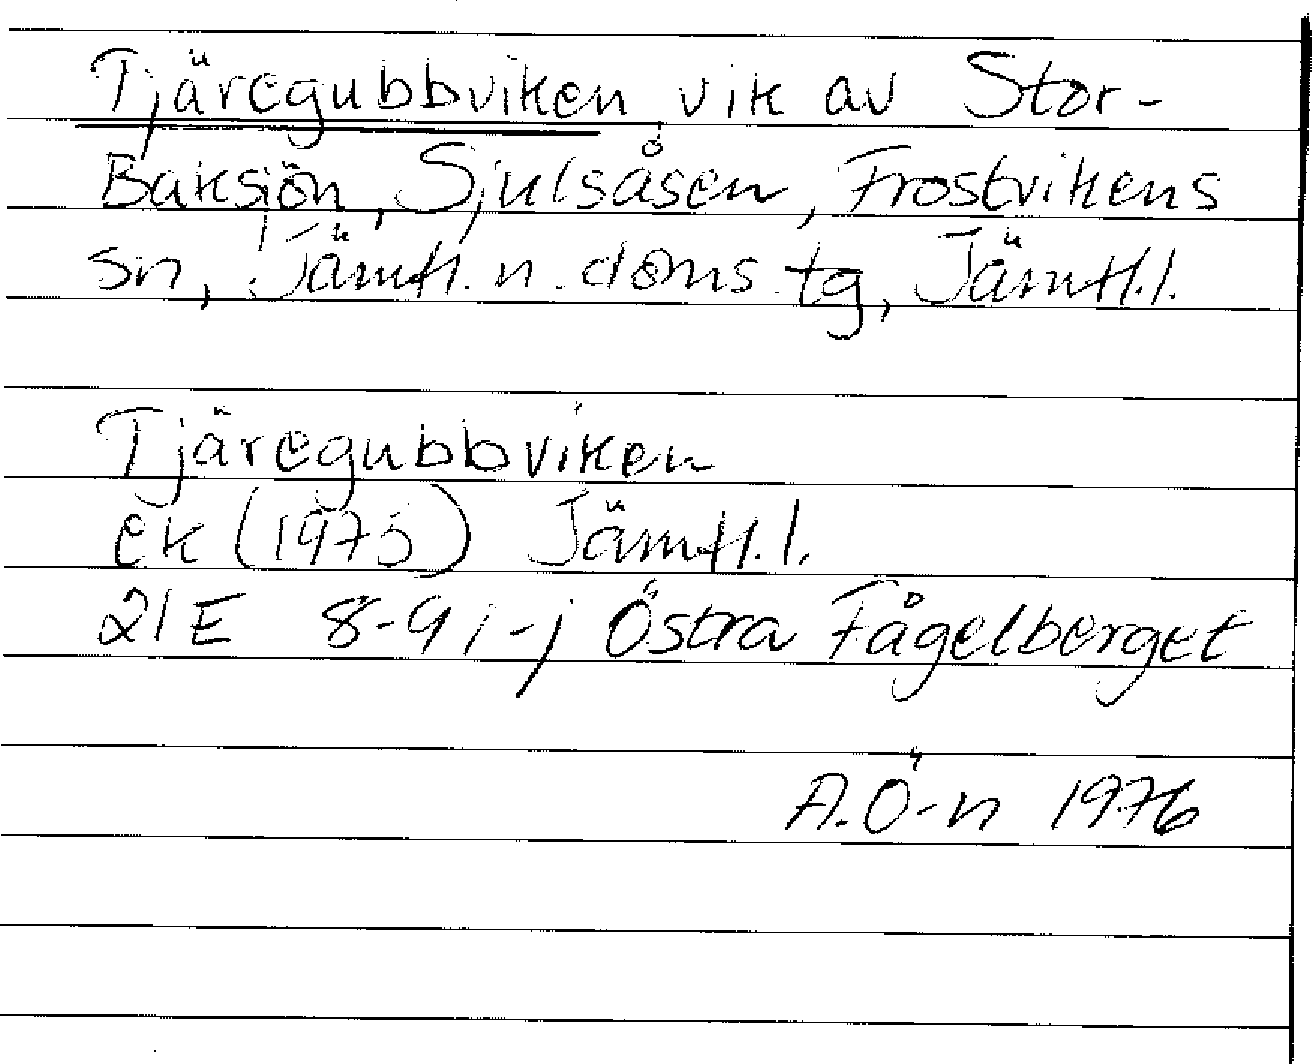 Tjäregubbviken, vik av Stor-
Baksjön, Sjulsåsen, Frostvikens
sn, Jämtl. n. doms. tg, Jämtl. l.
Tjäregubbviken
ek (1975) Jämtl. l.
21E 8-9 i-j Östra Fågelberget
A.Ö-n 1976